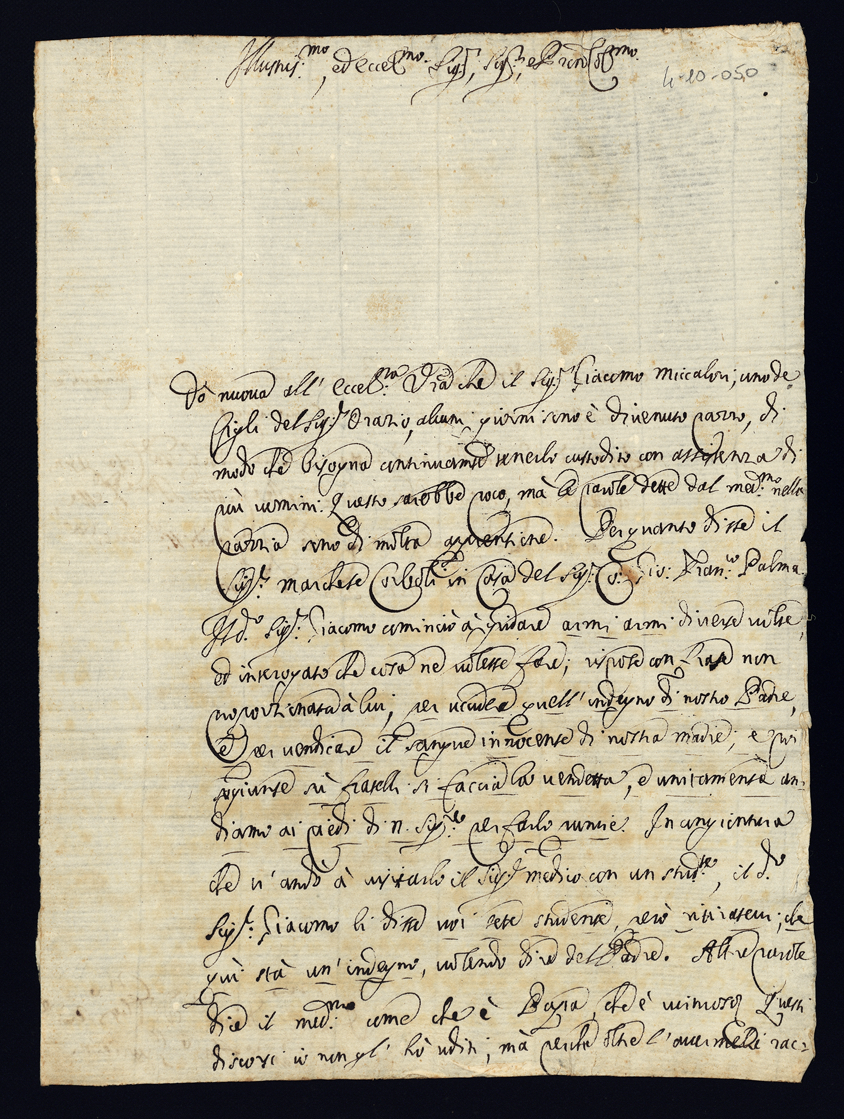 Illustris.mo, ed Eccel.mo Sig.r, Sig.r, e Pron Col.mo
4-10-050
Dò nuova all' Eccel.za V.ra che il Sig.r Giacomo Miccalori, uno de
figli del Sig.r Orazio, alcuni giorni sono è divenuto pazzo, di
modo che bisogna continuamte tenerlo custodito con assistenza di
più uomini. Questo sarebbe poco, mà le parole dette dal med.mo nella
pazzia sono di molta
Per quanto disse il
Sig.r Marchese Corboli in Casa del Sig.r Co: Gio: Fran.co Palma
Il d.o Sig.r Giacomo cominciò à gridare armi armi diverse volte,
ed interogato che cosa ne volesse fare; rispose con frase non
proportionata à lui, per uccidere quell' indegno di nostro Padre,
e per vendicare il sangue innocente di nostra madre, e poi
sogiunse sù fratelli si faccia la vendetta, e unitamente an-
diamo ai piedi di N. Sig.re per farlo
In congientura
che v' andò à visitarlo il Sig.r medico con un stud.te, il d.o
Sig.r Giacomo li disse voi sete studente, però ritiratevi, che
quì stà un' indegno, volendo dire del Padre. Altre parole
dice il med.mo come che è Papa, che è
Questi
discorsi io non gl' hò uditi, mà perche oltre l' avermeli rac=